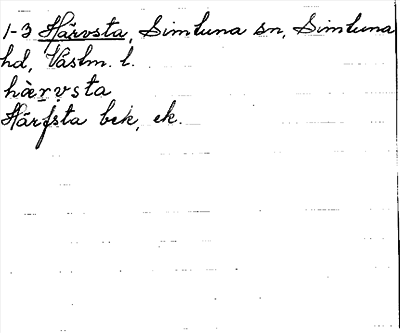 1-3 Härvsta, Simtuna sn, Simtuna
hd, Västm. l.
hæ̀r̥v̥sta
Härfsta bek, ek.